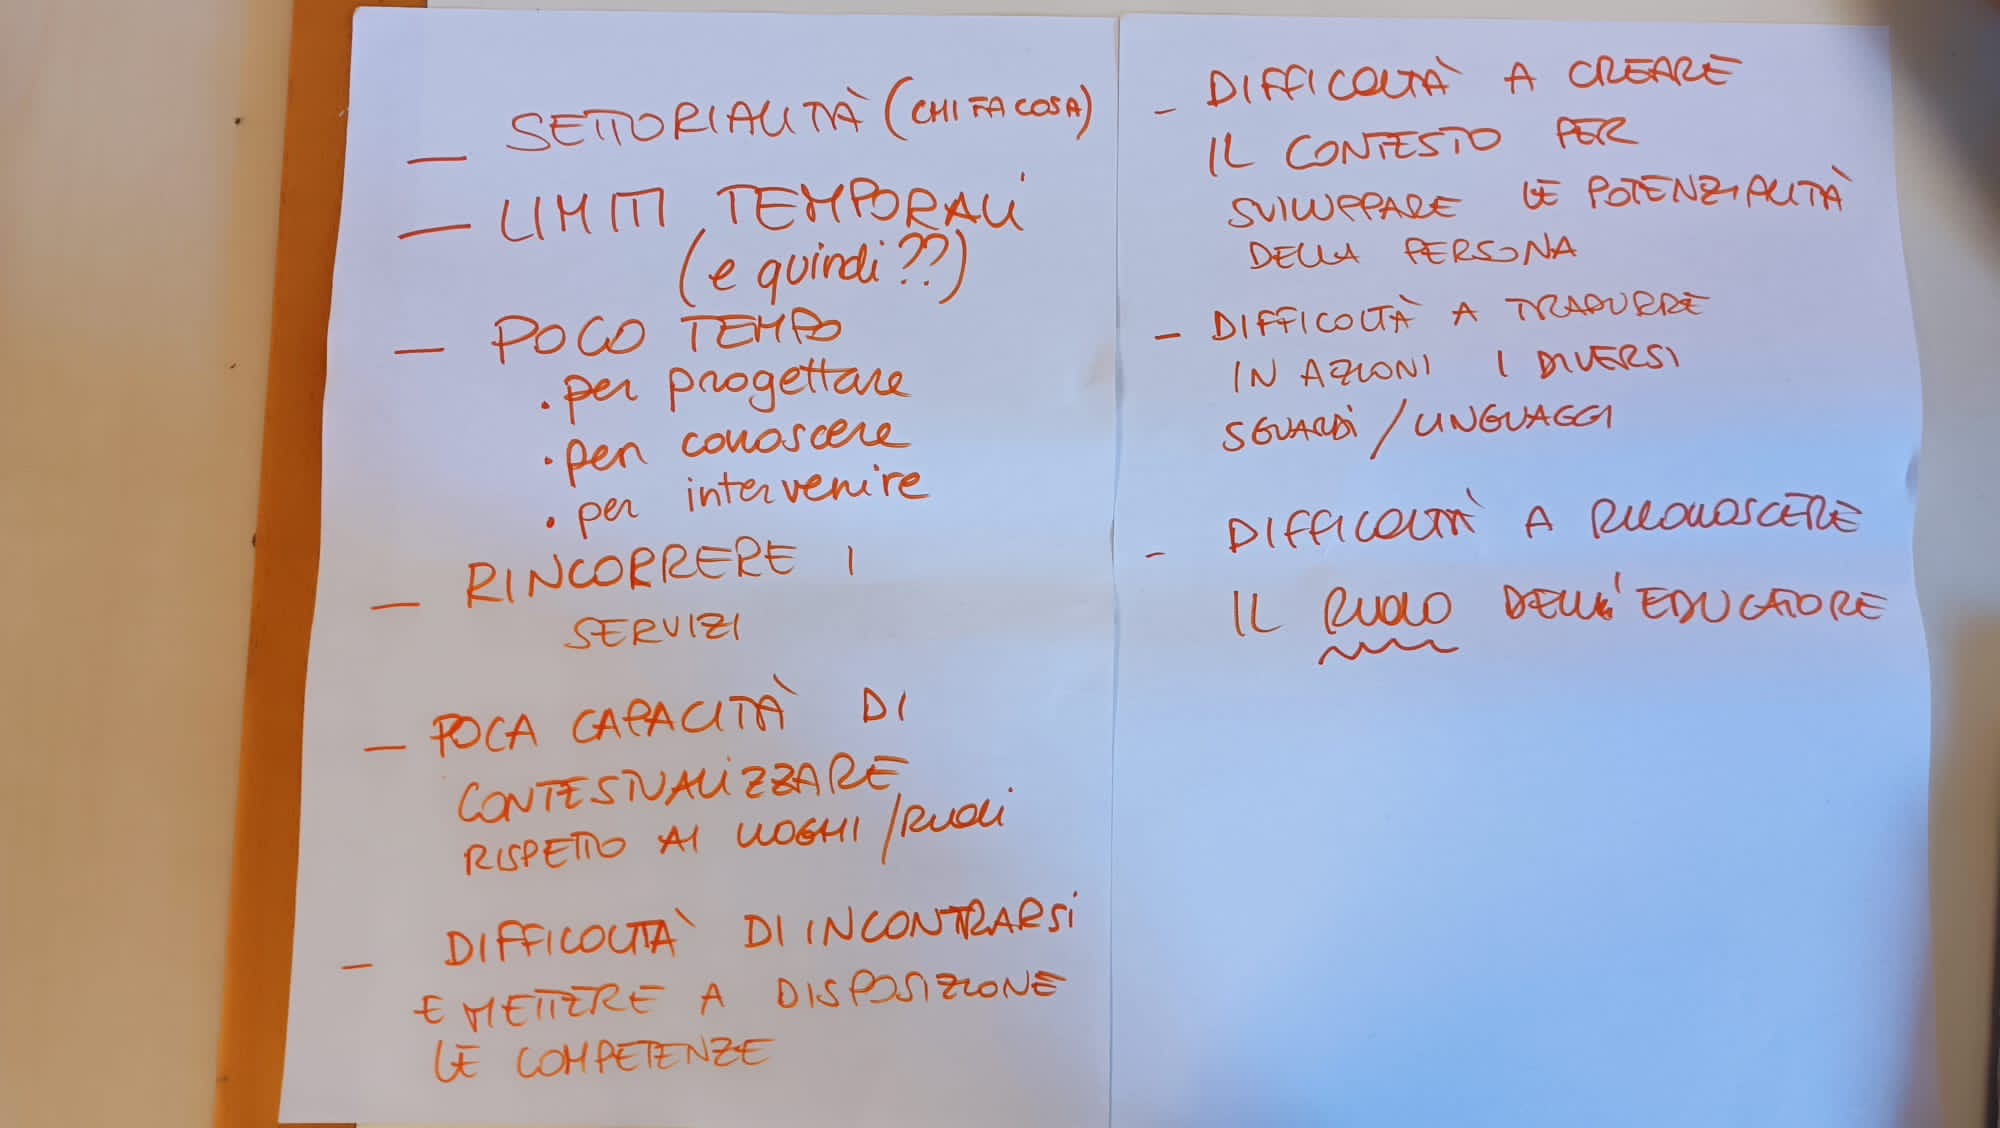 — SETTORIALITÀ (CHI FA COSA)
— LIMITI TEMPORALI
(e quindi??)
— POCO TEMPO
. per progettare
. per conoscere
. per intervenire
— RINCORRERE I
SERVIZI
— POCA CAPACITÀ DI
CONTESTUALIZZARE
RISPETTO AI LUOGHI/RUOLI
— DIFFICOLTÀ DI INCONTRARSI
E METTERE A DISPOSIZIONE
LE COMPETENZE
- DIFFICOLTÀ A CREARE
IL CONTESTO PER
SVILUPPARE LE POTENZIALITÀ
DELLA PERSONA
- DIFFICOLTÀ A TRADURRE
IN AZIONI I DIVERSI
SGUARDI/LINGUAGGI
- DIFFICOLTÀ A RICONOSCERE
IL RUOLO DELL'EDUCATORE